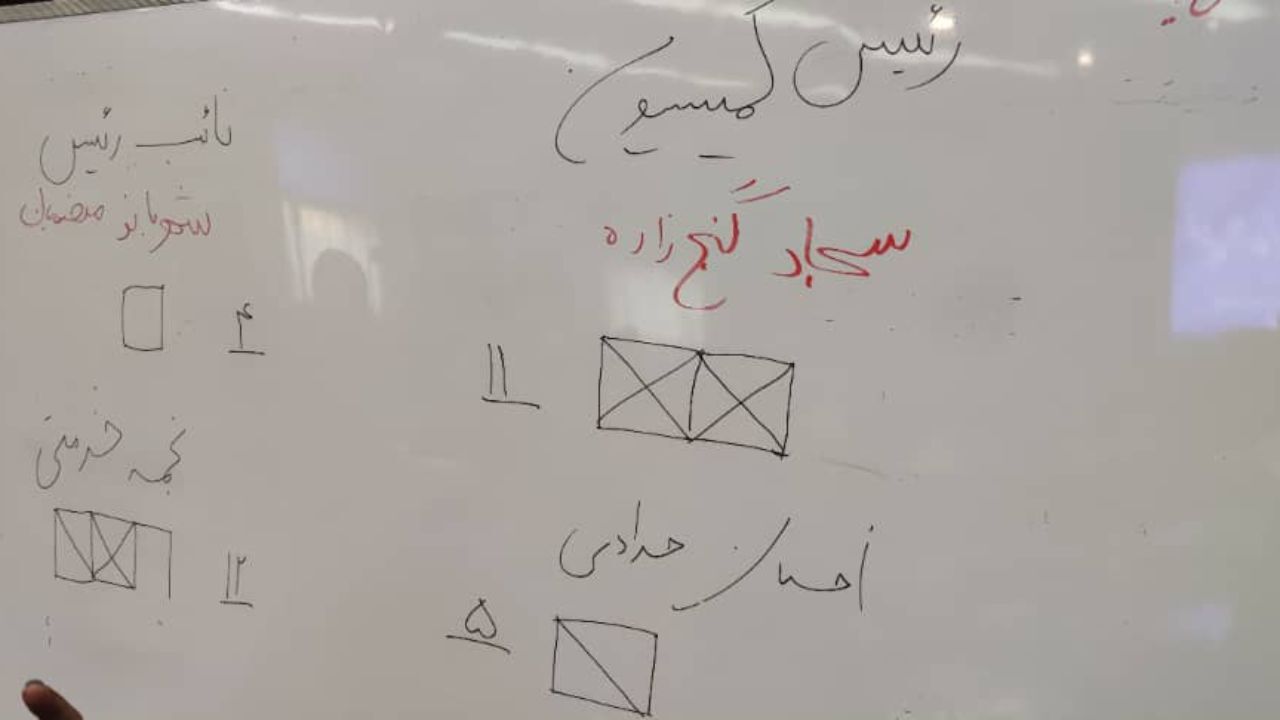 رئیس کمیسیون
سجاد گنج زاده
۱۱
احسان حدادی
۵
نائب رئیس
۴
نجمه خدمتی
۱۲